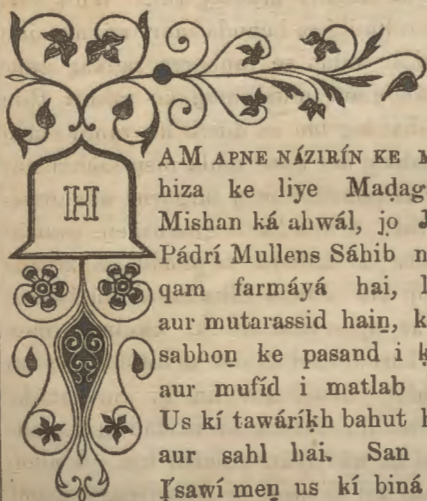 HAM APNE NÁZIRÍN KE
hiza ke liye Maḍag
Mishan ká ahwál, jo
Pádrí Mullens Sáhib n
qam farmáyá hai, l
aur mutarassid haiṉ, k
sabhoṉ ke pasand i ḵ
aur mufíd i matlab
Us kí tawáríḵh bahut h
aur sahl hai. San
I'sawí meṉ us kí biná